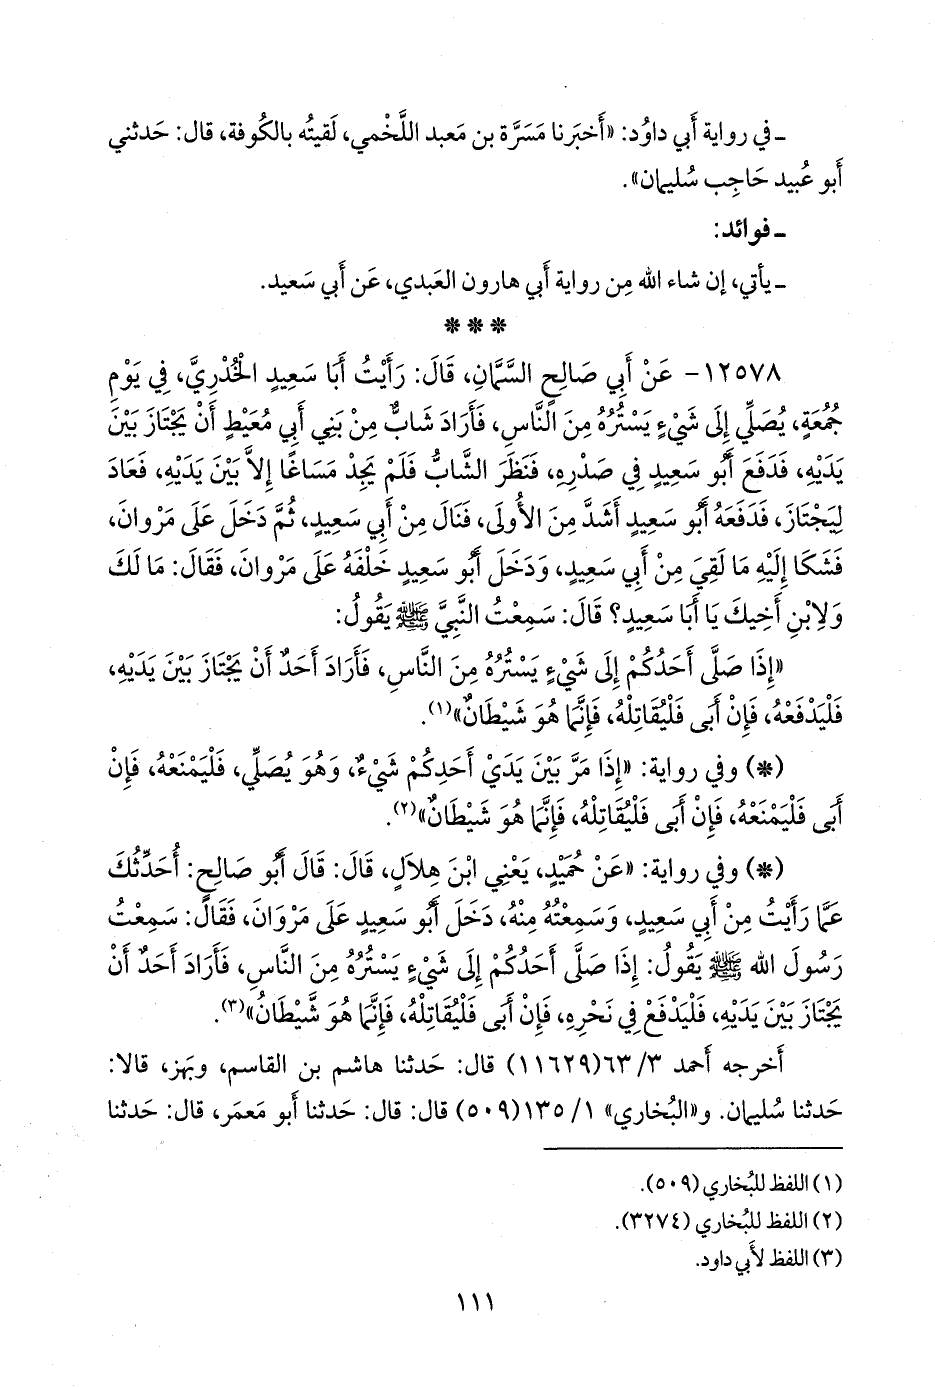 ـ في رواية أَبي داوُد: «أَخبَرنا مَسَرَّة بن مَعبد اللَّخْمي، لَقيتُه بالكُوفة، قال: حَدثني
أَبو عُبيد حَاجِب سُليمان».
ـ فوائد:
ـ يأتي، إن شاء الله مِن رواية أَبي هارون العَبدي، عَن أَبي سَعيد.
* * *
١٢٥٧٨- عَنْ أَبِي صَالِحٍ السَّمَّانِ، قَالَ: رَأَيْتُ أَبَا سَعِيدٍ الْخُدْرِيَّ، فِي يَوْمِ
جُمُعَةٍ، يُصَلِّي إِلَى شَيْءٍ يَسْتُرُهُ مِنَ النَّاسِ، فَأَرَادَ شَابٌّ مِنْ بَنِي أَبِي مُعَيْطٍ أَنْ يَجْتَازَ بَيْنَ
يَدَيْهِ، فَدَفَعَ أَبُو سَعِيدٍ فِي صَدْرِهِ، فَنَظَرَ الشَّابُّ فَلَمْ يَجِدْ مَسَاغًا إِلاَّ بَيْنَ يَدَيْهِ، فَعَادَ
لِيَجْتَازَ، فَدَفَعَهُ أَبُو سَعِيدٍ أَشَدَّ مِنَ الأُولَى، فَنَالَ مِنْ أَبِي سَعِيدٍ، ثُمَّ دَخَلَ عَلَى مَرْوانَ،
فَشَكَا إِلَيْهِ مَا لَقِيَ مِنْ أَبِي سَعِيدٍ، وَدَخَلَ أَبُو سَعِيدٍ خَلْفَهُ عَلَى مَرْوانَ، فَقَالَ: مَا لَكَ
وَلاِبْنِ أَخِيكَ يَا أَبَا سَعِيدٍ؟ قَالَ: سَمِعْتُ النَّبِيَّ ﷺ يَقُولُ:
«إِذَا صَلَّى أَحَدُكُمْ إِلَى شَيْءٍ يَسْتُرُهُ مِنَ النَّاسِ، فَأَرَادَ أَحَدٌ أَنْ يَجْتَازَ بَيْنَ يَدَيْهِ،
فَلْيَدْفَعْهُ، فَإِنْ أَبَى فَلْيُقَاتِلْهُ، فَإِنَّمَا هُوَ شَيْطَانٌ»(١).
(*) وفي رواية: «إِذَا مَرَّ بَيْنَ يَدَيْ أَحَدِكُمْ شَيْءٌ، وَهُوَ يُصَلِّي، فَلْيَمْنَعْهُ، فَإِنْ
أَبَى فَلْيَمْنَعْهُ، فَإِنْ أَبَى فَلْيُقَاتِلْهُ، فَإِنَّمَا هُوَ شَيْطَانٌ»(٢).
(*) وفي رواية: «عَنْ حُمَيْدٍ، يَعْنِي ابْنَ هِلاَلٍ، قَالَ: قَالَ أَبُو صَالِحٍ: أُحَدِّثُكَ
عَمَّا رَأَيْتُ مِنْ أَبِي سَعِيدٍ، وَسَمِعْتُهُ مِنْهُ، دَخَلَ أَبُو سَعِيدٍ عَلَى مَرْوَانَ، فَقَالَ: سَمِعْتُ
رَسُولَ الله ﷺ يَقُولُ: إِذَا صَلَّى أَحَدُكُمْ إِلَى شَيْءٍ يَسْتُرُهُ مِنَ النَّاسِ، فَأَرَادَ أَحَدٌ أَنْ
يَجْتَازَ بَيْنَ يَدَيْهِ، فَلْيَدْفَعْ فِي نَحْرِهِ، فَإِنْ أَبَى فَلْيُقَاتِلْهُ، فَإِنَّمَا هُوَ شَّيْطَانُ»(٣).
أَخرجه أَحمد ٣/ ٦٣(١١٦٢٩) قال: حَدثنا هاشم بن القاسم، وبَهز، قالا:
حَدثنا سُليمان. و«البُخاري» ١/ ١٣٥(٥٠٩) قال: قال: حَدثنا أَبو مَعمَر، قال: حَدثنا
(١) اللفظ للبُخاري (٥٠٩).
(٢) اللفظ للبُخاري (٣٢٧٤).
(٣) اللفظ لأَبي داود.
١١١